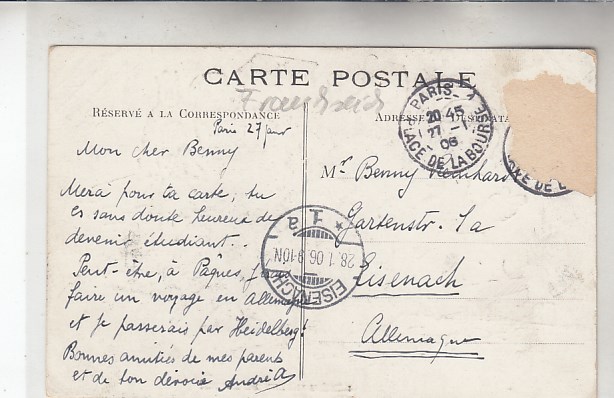 CARTE POSTALE
Frankreich
RÉSERVÉ A LA CORRESPONDANCE
Paris 27 janv
Mon cher Benny
Merci pour ta carte, tu
es sans doute heureux de
devenir étudiant..
Peut-être, à Pâques,
faire un voyage en Allemagne
et je passerais par Heidelberg!
Bonnes amitiés de mes parents
et de ton dévoué André A
ADRESSE
Mr. Benny
Gartenstr. 1a
Eisenach
Allemagne
PARIS
20 45
27 -1
06
PLACE DE LA BOURSE
EISENACH
28.1.06.9-10N.
* 1a